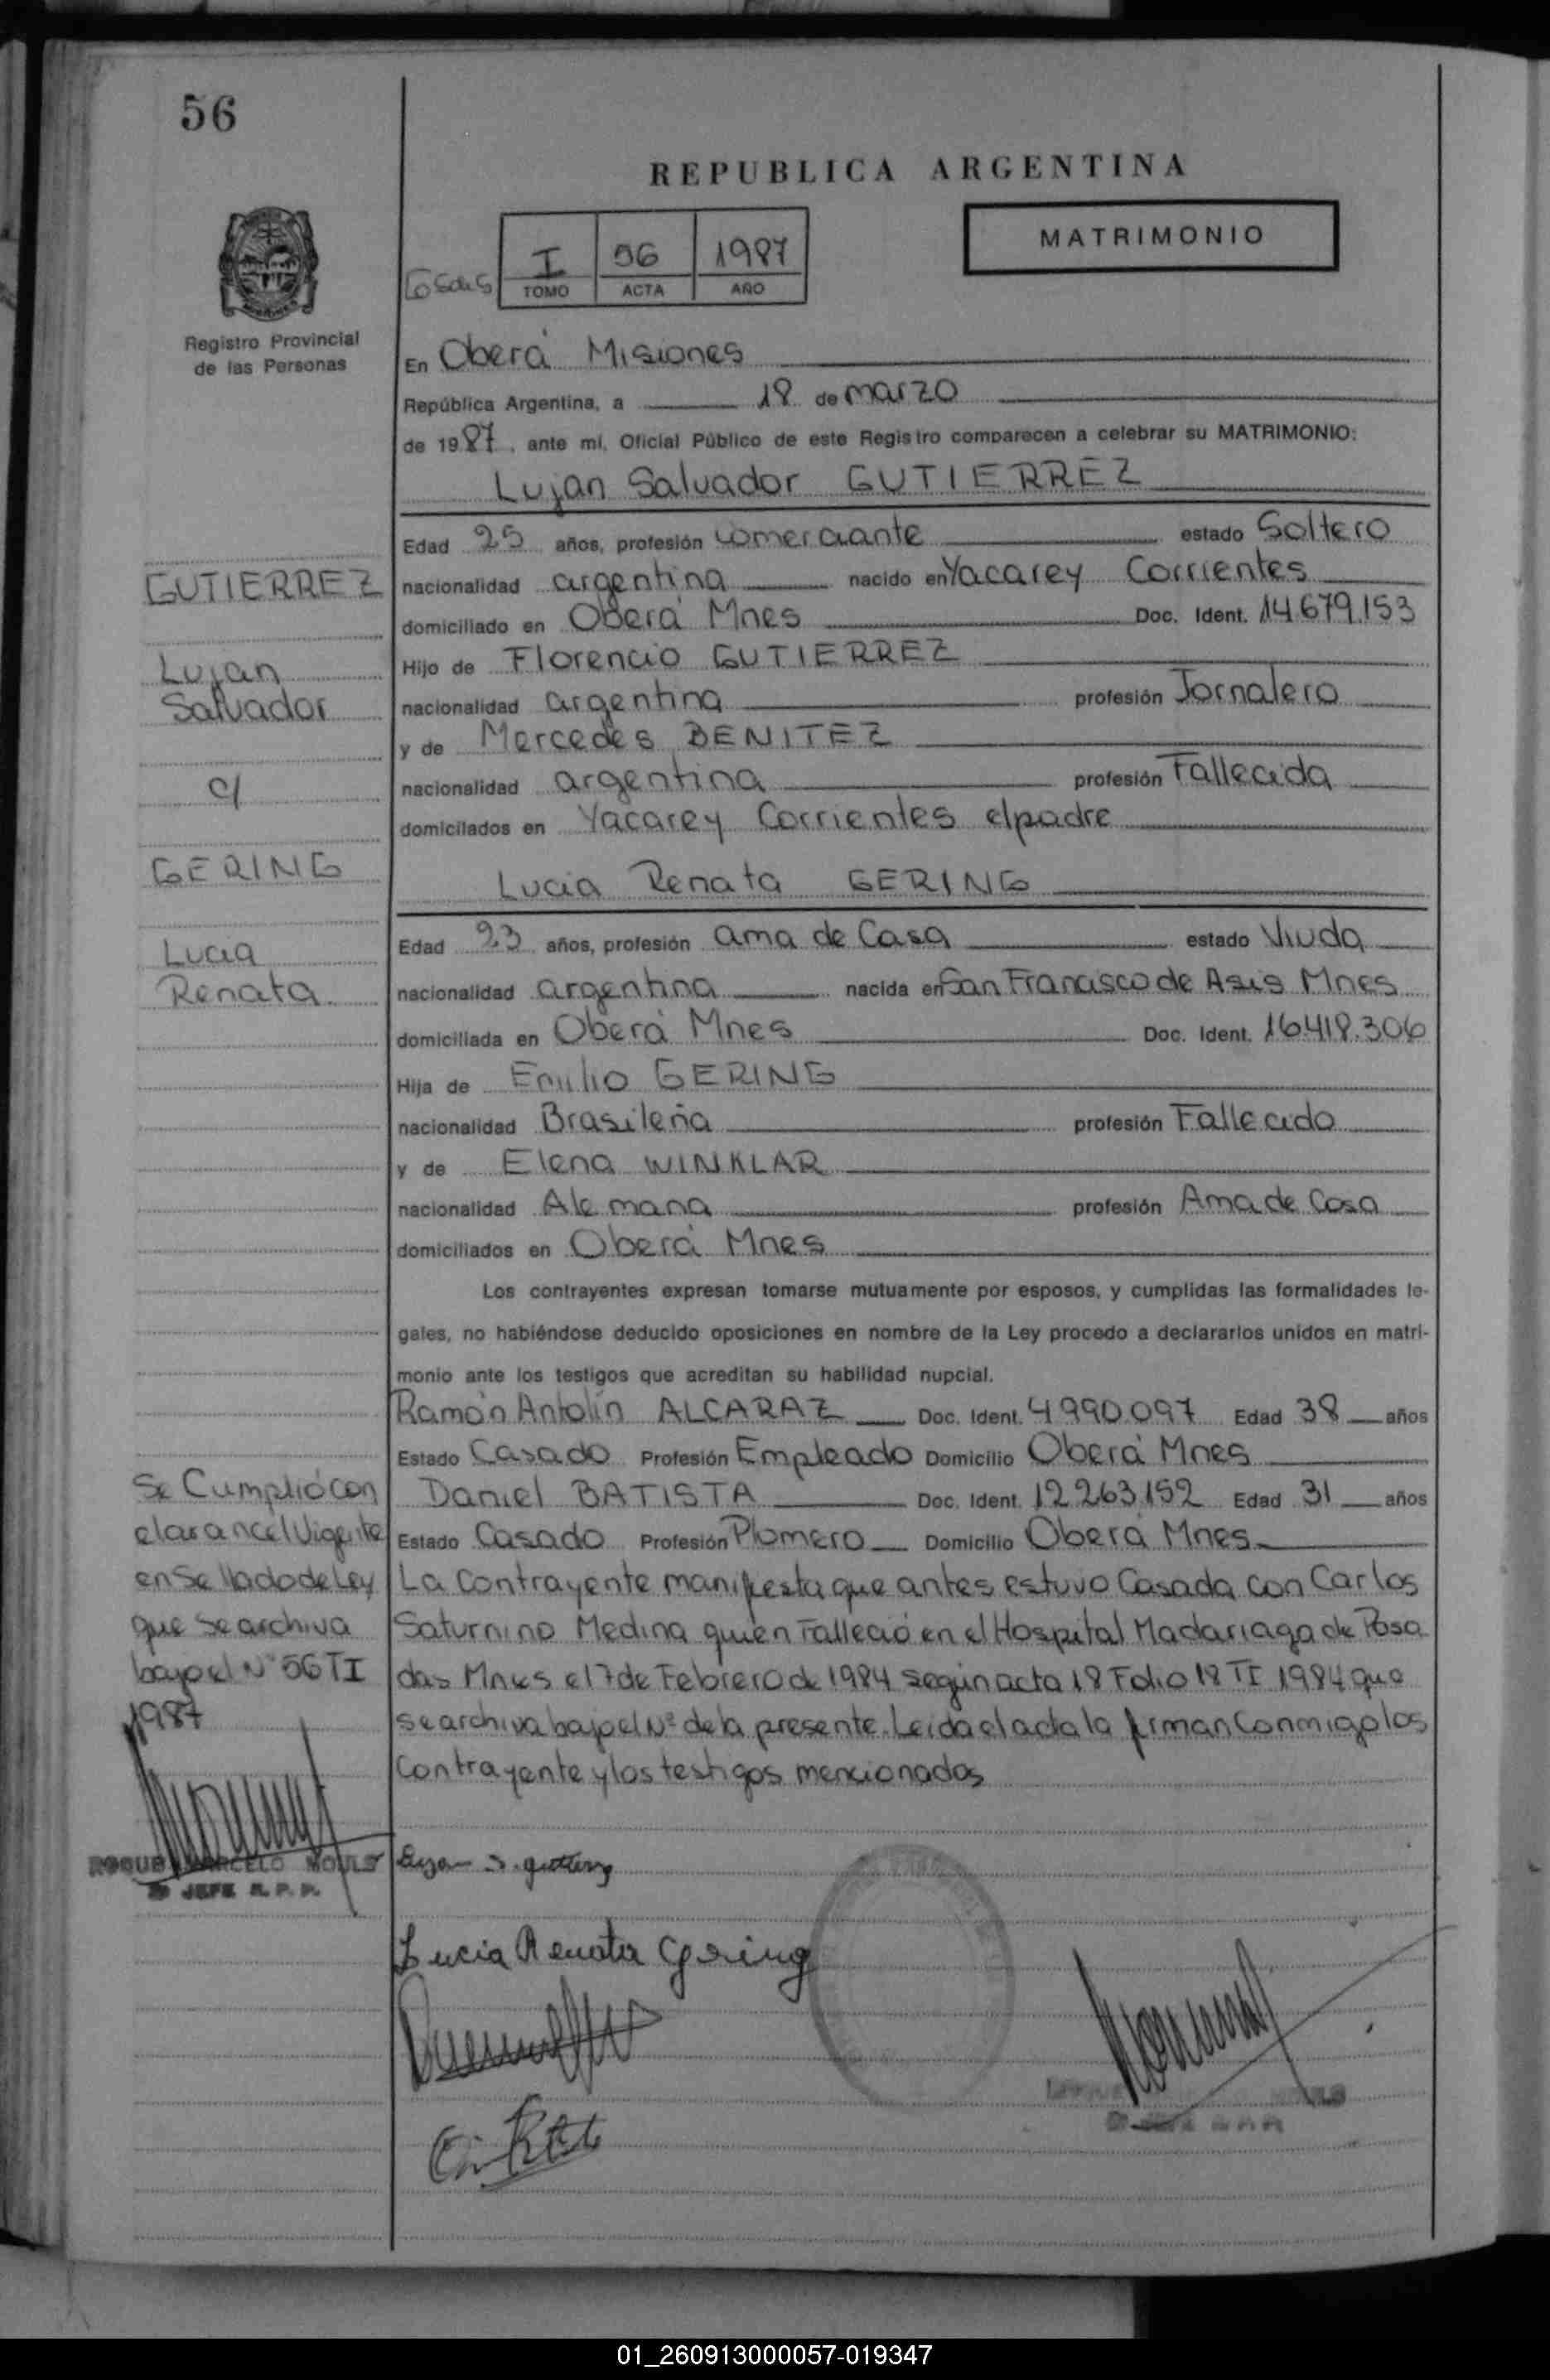 56
REPUBLICA ARGENTINA
MATRIMONIO
I 56 1987
TOMO ACTA AÑO
Registro Provincial
de las Personas
En Oberá Misiones
República Argentina, a 18 de marzo
de 1987, ante mí, Oficial Público de este Registro comparecen a celebrar su MATRIMONIO:
Lujan Salvador GUTIERREZ
Edad 25 años, profesión comerciante estado Soltero
nacionalidad argentina nacido en Yacarey Corrientes
domiciliado en Oberá Mnes Doc. Ident. 14.679.153
Hijo de Florencio GUTIERREZ
nacionalidad argentina profesión Jornalero
y de Mercedes BENITEZ
nacionalidad argentina profesión Fallecida
domicilados en Yacarey Corrientes el padre
Lucia Renata GERING
Edad 23 años, profesión ama de Casa estado Viuda
nacionalidad argentina nacida en San Francisco de Asis Mnes
domiciliada en Oberá Mnes Doc. Ident. 16.418.306
Hija de Emilio GERING
nacionalidad Brasileña profesión Fallecido
y de Elena WINKLAR
nacionalidad Alemana profesión Ama de Casa
domiciliados en Oberá Mnes
Los contrayentes expresan tomarse mutuamente por esposos, y cumplidas las formalidades le-
gales, no habiéndose deducido oposiciones en nombre de la Ley procedo a declararlos unidos en matri-
monio ante los testigos que acreditan su habilidad nupcial.
Ramón Antolín ALCARAZ Doc. Ident. 4990.097 Edad 38 años
Estado Casado Profesión Empleado Domicilio Oberá Mnes
Daniel BATISTA Doc. Ident. 12.263.152 Edad 31 años
Estado Casado Profesión Plomero Domicilio Oberá Mnes
La Contrayente manifesta que antes estuvo Casada con Carlos
Saturnino Medina quien Falleció en el Hospital Madariaga de Posa
das Mnes el 7 de Febrero de 1984 según acta 18 Folio 18 TI 1984 que
se archiva bajo el Nº de la presente. Leida el acta la firman Conmigo los
Contrayente y los testigos mencionados
GUTIERREZ
Lujan
Salvador
c/
GERING
Lucia
Renata
Se Cumplió con
el arancel Vigente
en Sellado de Ley
que se archiva
bajo el Nº 56 TI
1987
ROQUE MARCELO MOULS
JEFE R. P. P.
Lujan S. Gutierrez
Lucia Renata Gering
01_260913000057-019347